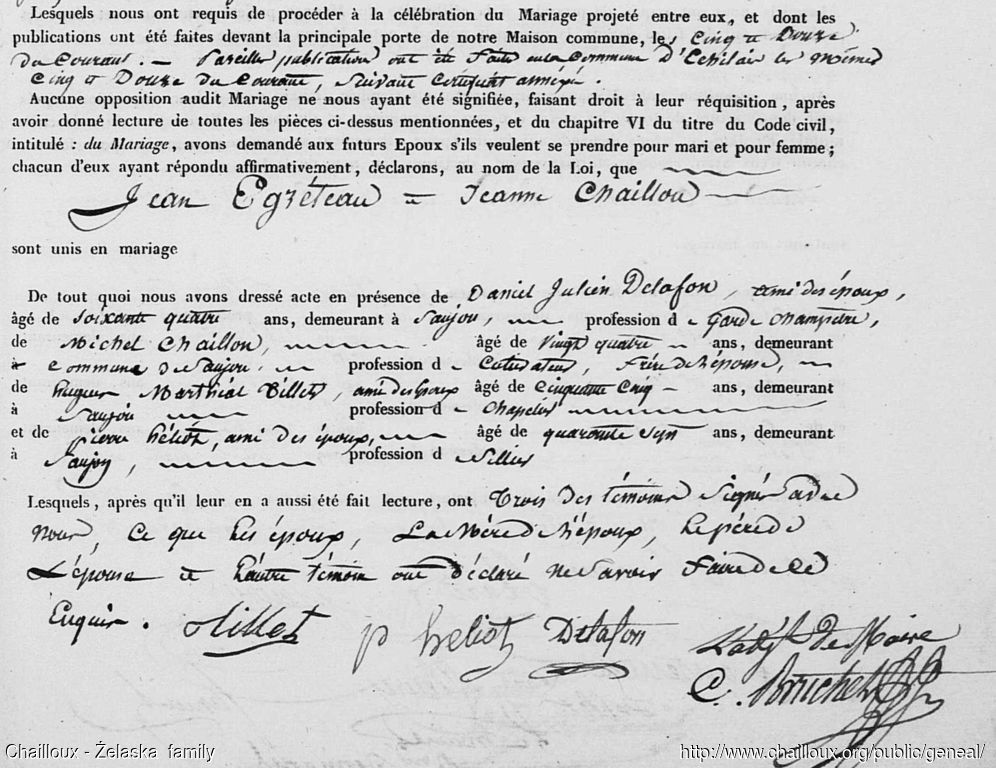 Lesquels nous ont requis de procéder à la célébration du Mariage projeté entre eux, et dont les
publications ont été faites devant la principale porte de notre Maison commune, les Cinq et Douze
du Courant. — Pareilles publications ont été faites en la Commune d' les mêmes
Cinq et Douze du Courant, Suivant Certificat annéxé.
Aucune opposition audit Mariage ne nous ayant été signifiée, faisant droit à leur réquisition, après
avoir donné lecture de toutes les pièces ci-dessus mentionnées, et du chapitre VI du titre du Code civil,
intitulé : du Mariage, avons demandé aux futurs Epoux s'ils veulent se prendre pour mari et pour femme ;
chacun d'eux ayant répondu affirmativement, déclarons, au nom de la Loi, que
Jean Egréteau et Jeanne Chaillou
sont unis en mariage
De tout quoi nous avons dressé acte en présence de Daniel Julien Delafon, ami des époux,
âgé de Soixante quatre ans, demeurant à Saujon, profession d e Garde Champêtre,
de Michel Chaillou, âgé de Vingt quatre ans, demeurant
à Commune de Saujon profession d e Cultivateur, Frère de l'épouse,
de hugues Marthial Billet, ami des époux âgé de Cinquante Cinq ans, demeurant
à Saujon profession d e Chapelier
et de pierre héliot, ami des époux, âgé de quarante Sept ans, demeurant
à Saujon, profession d e Sellier
Lesquels, après qu'il leur en a aussi été fait lecture, ont Trois des témoins Signés avec
Nous, Ce que les époux, La Mère de l'époux, le père de
L'épouse et l'autre témoin ont déclaré ne Savoir Faire de ce
Enquis. Billet p heliot Delafon L'adjt De Maire
C.
Chailloux - Żelaska family http://www.chailloux.org/public/geneal/